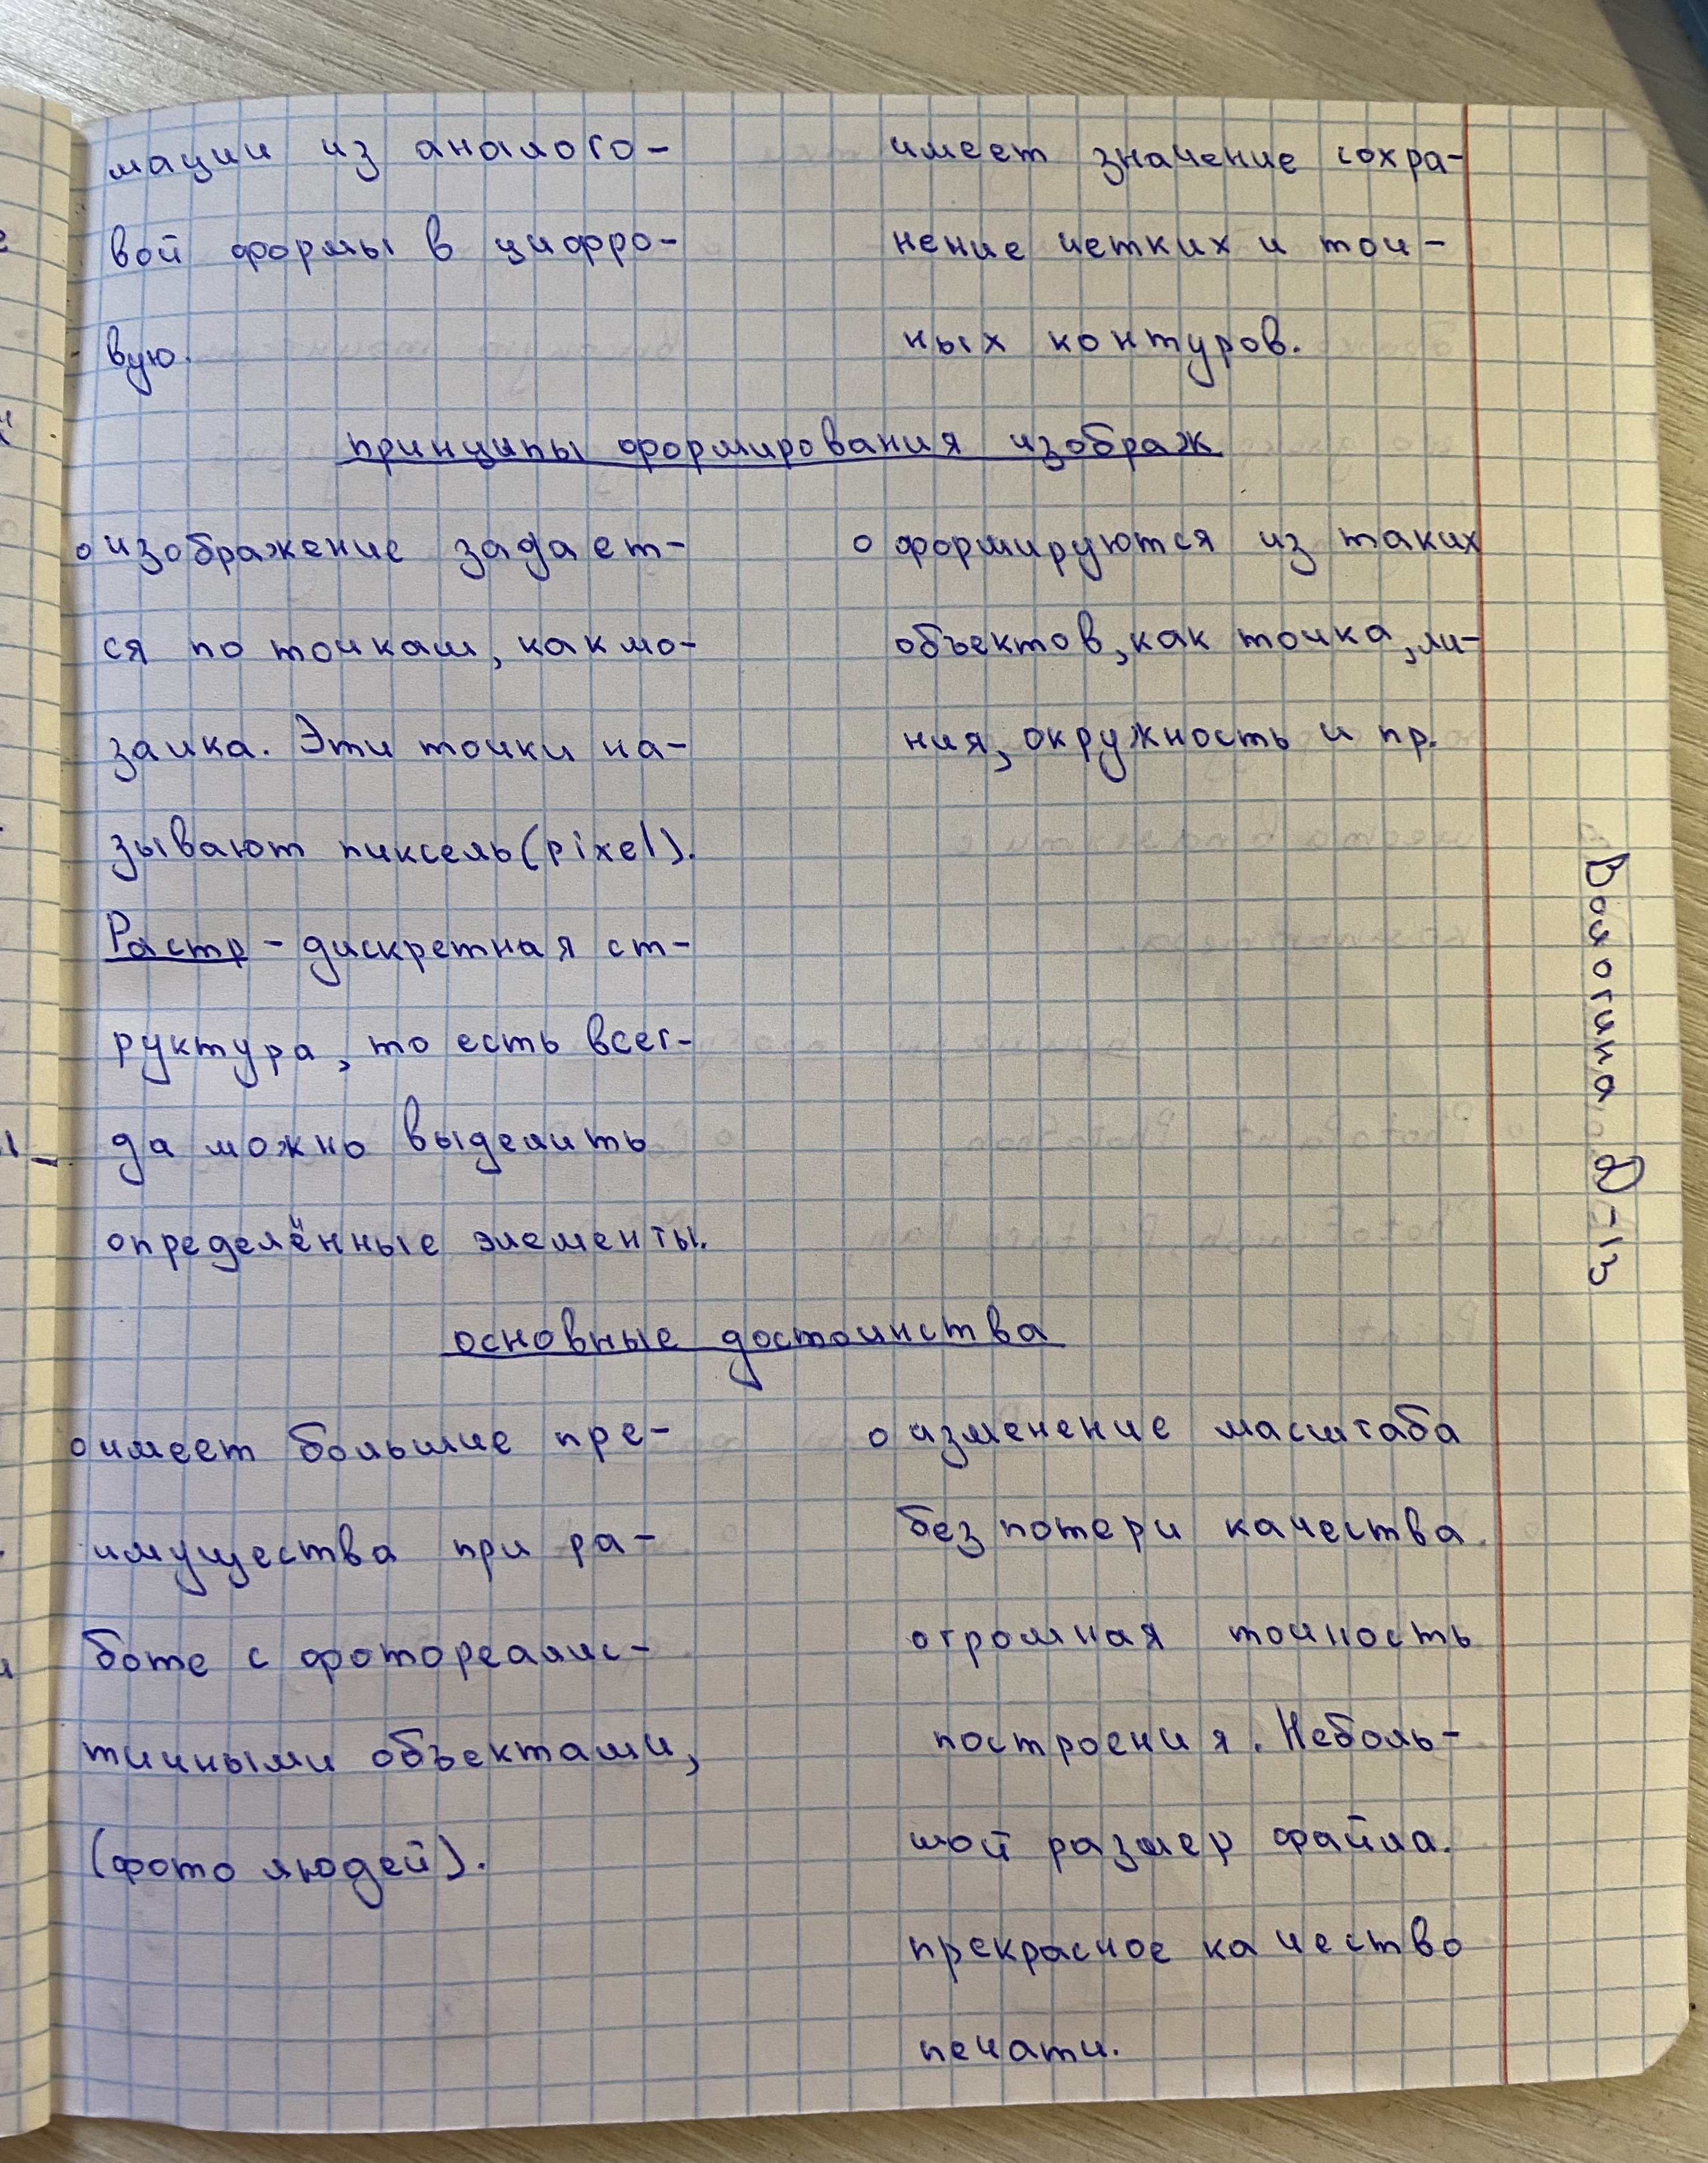 мации из аналого-
вой формы в цифро-
вую.
имеет значение сохра-
нение четких и точ-
ных контуров.
принципы формирования изображ
о изображение задает-
ся по точкам, как мо-
заика. Эти точки на-
зывают пиксель (pixel).
Растр - дискретная ст-
руктура, то есть всег-
да можно выделить
определённые элементы.
о формируются из таких
объектов, как точка, ли-
ния, окружность и пр.
основные достоинства
о имеет большие пре-
имущества при ра-
боте с фотореалис-
тичными объектами,
(фото людей).
о изменение масштаба
без потери качества.
огромная точность
построения. Неболь-
шой размер файла.
прекрасное качество
печати.
Вологина Д-13